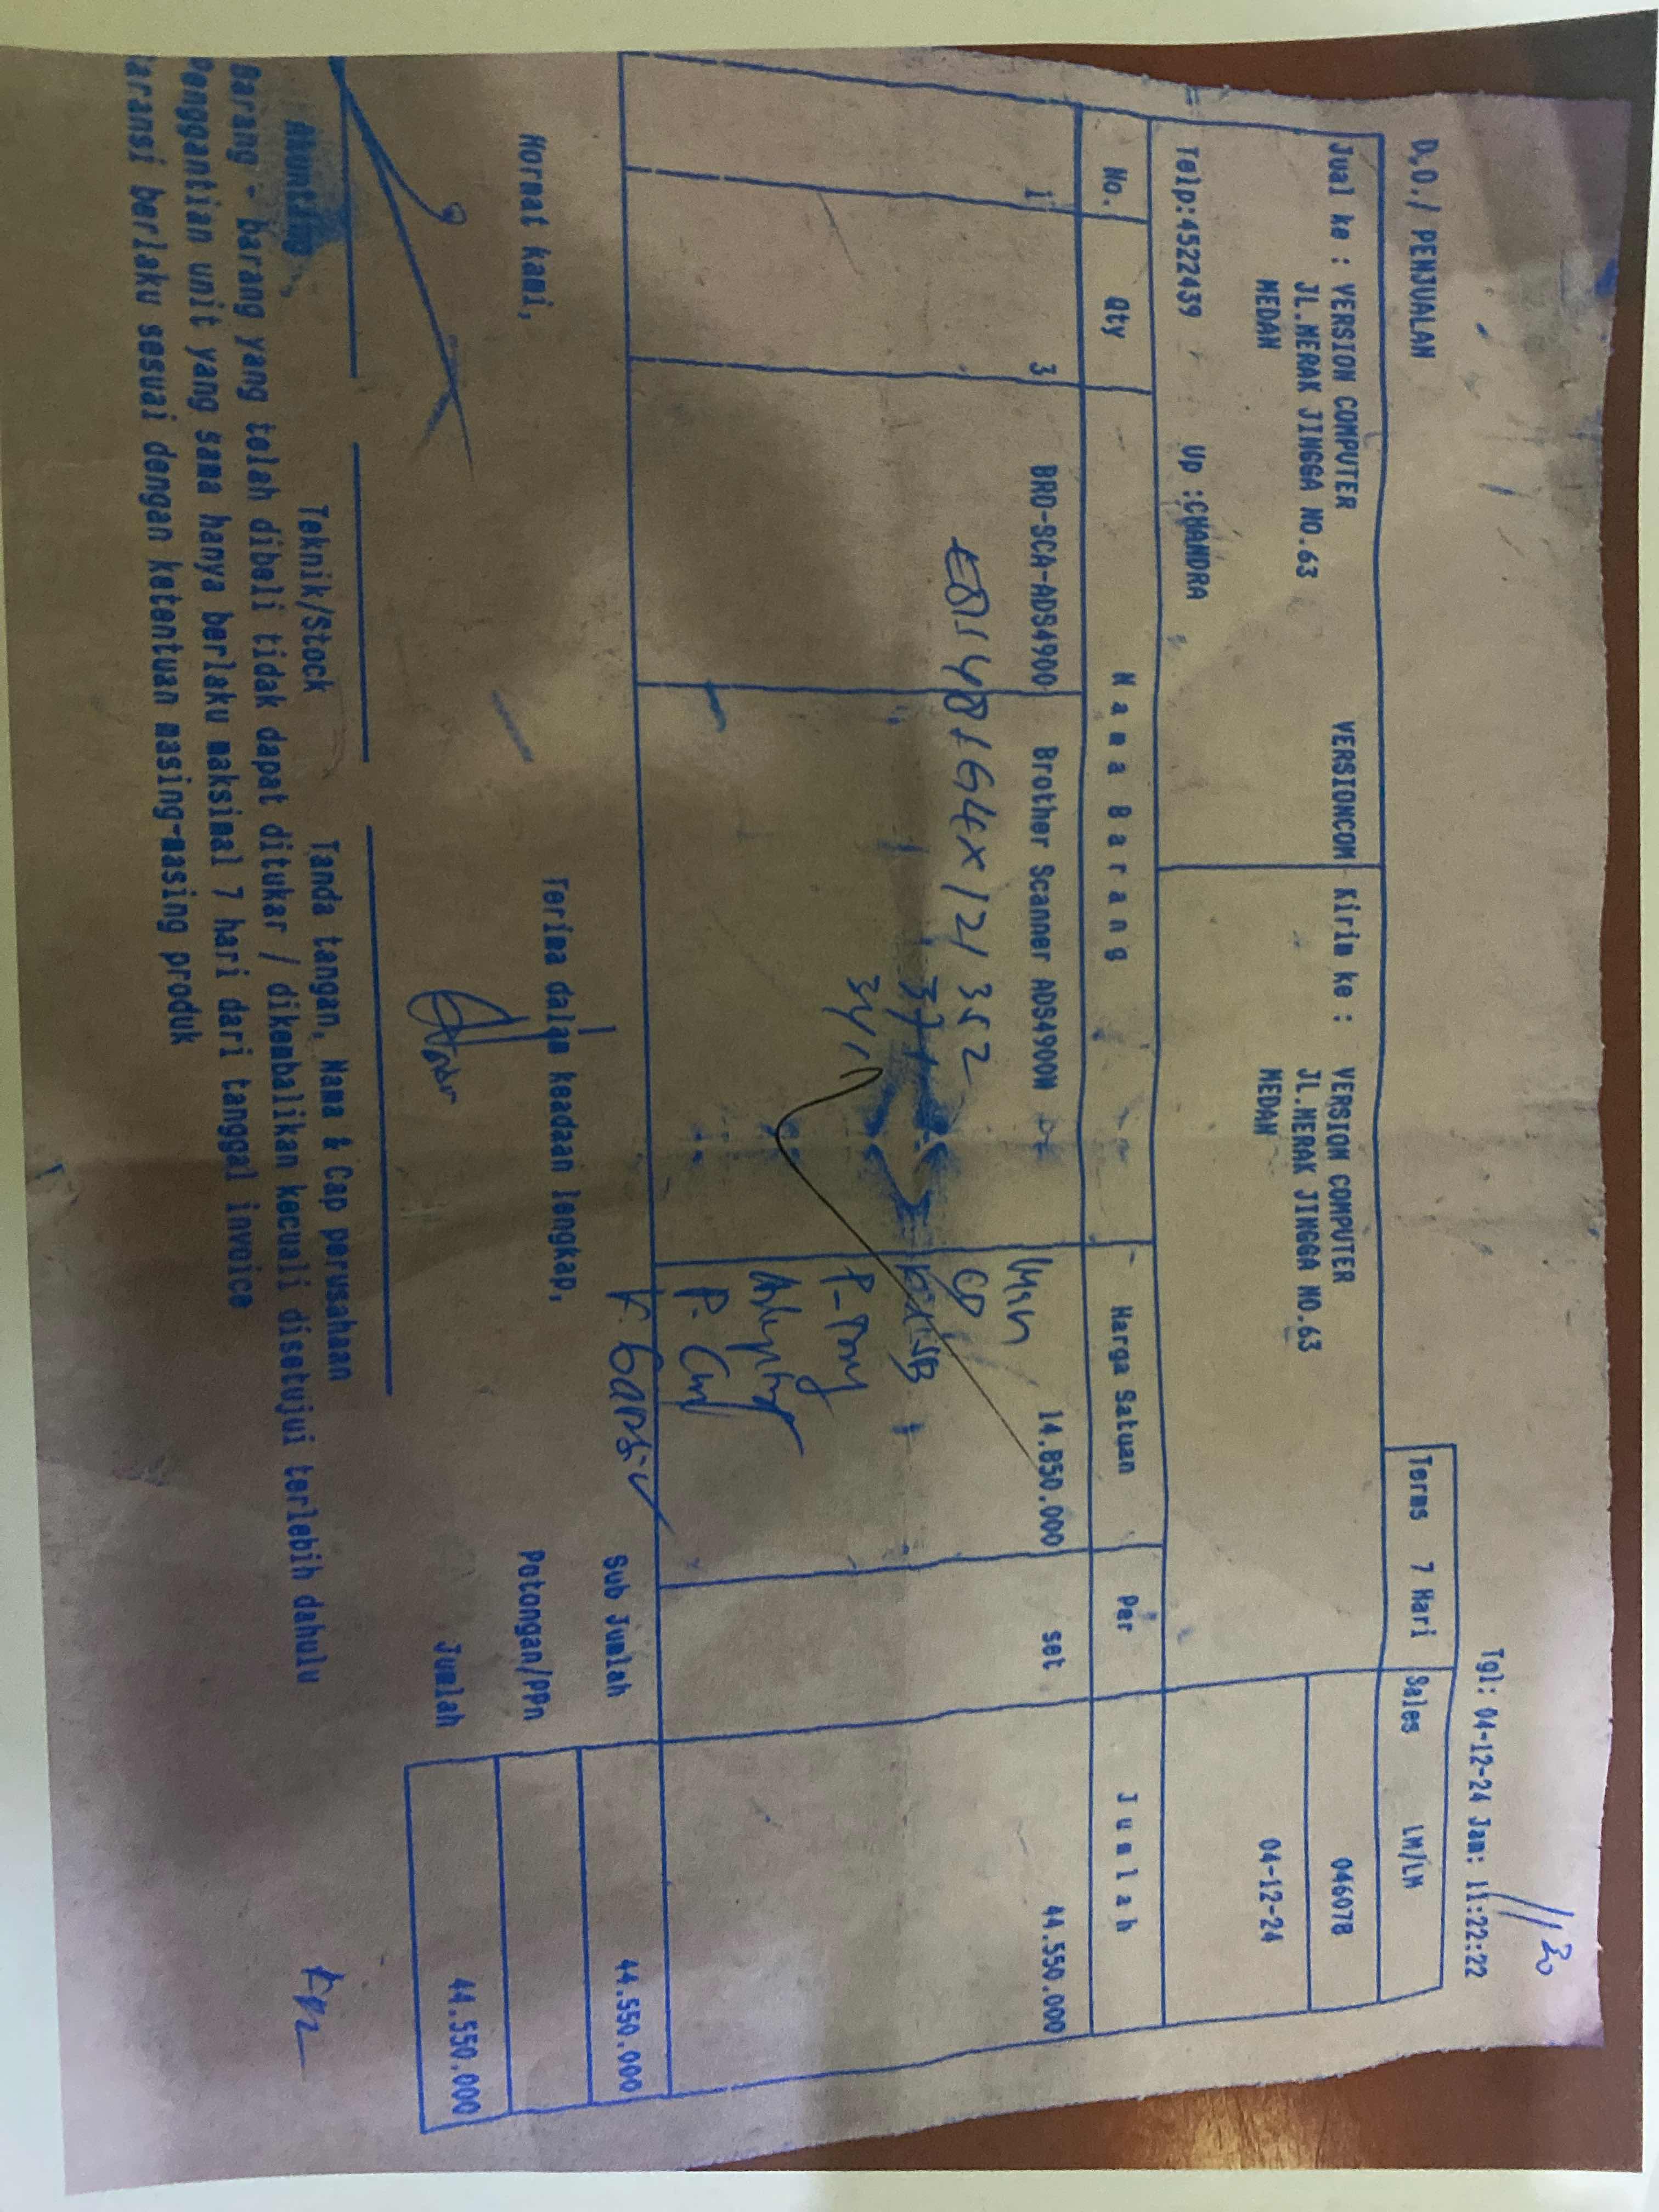 11:30
Tgl: 04-12-24 Jam: 11:22:22
D.O./ PENJUALAN
Terms 7 Hari Sales LM/LM
Jual ke : VERSION COMPUTER VERSIONCOM Kirim ke : VERSION COMPUTER 046078
JL.MERAK JINGGA NO.63 JL.MERAK JINGGA NO.63
MEDAN MEDAN 04-12-24
Telp:4522439 Up :CHANDRA
No. Qty Nama Barang Harga Satuan Per Jumlah
1 3 BRD-SCA-ADS4900 Brother Scanner ADS4900W 14.850.000 set 44.550.000
352
P. 
Sub Jumlah 44.550.000
Hormat kami, Terima dalam keadaan lengkap, Potongan/PPn
Jumlah 44.550.000
Akunting Teknik/Stock Tanda tangan, Nama & Cap perusahaan
Barang - barang yang telah dibeli tidak dapat ditukar / dikembalikan kecuali disetujui terlebih dahulu
Penggantian unit yang sama hanya berlaku maksimal 7 hari dari tanggal invoice
Garansi berlaku sesuai dengan ketentuan masing-masing produk